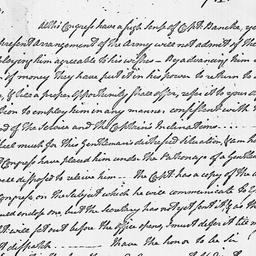 as the Congress have a high sense of Capt. Hanchet, yet
present arrangement of the Army will not admit of the
ploying him agreable to his wishes – By advancing him a
of money they have put it in his power to return to
, & as a proper opportunity shall offer, refer it to your
tion to employ him in any manner, consistent with the
of the Service and the Captain's Inclinations
feel much for this Gentleman's distressed situation, & am
Congress have placed him under the Patronage of a Gentle
well disposed to relieve him — the Capt has a copy of the
Congress, on the subject which he will communicate to
endors one, but the Secretary has not yet sent it, & as the
will set out before the office opens, I must defer it till
dispatch I have the honor to be Sir